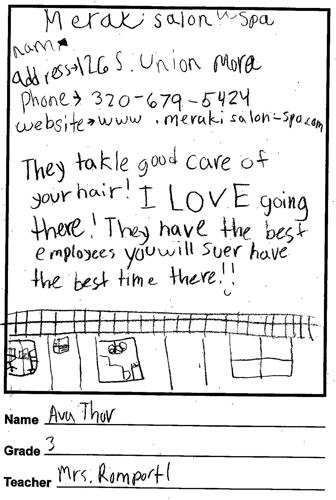 Meraki salon n spa
name
address→126 S. Union Mora
Phone→ 320-679-5424
website→www .meraki salon-spa.com
They takle good care of
your hair! I LOVE going
there! They have the best
employees you will suer have
the best time there!!
Name Ava Thor
Grade 3
Teacher Mrs. Romportl